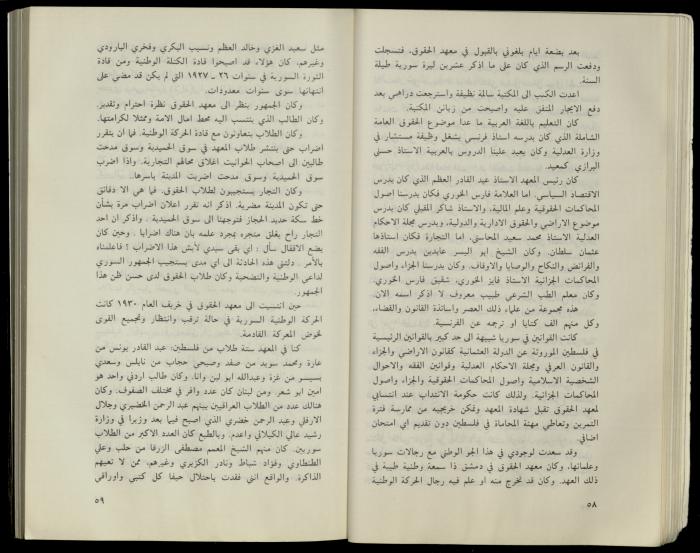 بعد بضعة ايام بلغوني بالقبول في معهد الحقوق، فتسجلت
ودفعت الرسم الذي كان على ما اذكر عشرين ليرة سورية طيلة
السنة.
اعدت الكتب الى المكتبة سالمة نظيفة واسترجعت دراهمي بعد
دفع الايجار المتفق عليه واصبحت من زبائن المكتبة.
كان التعليم باللغة العربية ما عدا موضوع الحقوق العامة
الشاملة الذي كان يدرسه استاذ فرنسي يشغل وظيفة مستشار في
وزارة العدلية وكان يعيد علينا الدروس بالعربية الاستاذ حسني
البرازي كمعيد.
كان رئيس المعهد الاستاذ عبد القادر العظم الذي كان يدرس
الاقتصاد السياسي. اما العلامة فارس الخوري فكان يدرسنا اصول
المحاكمات الحقوقية وعلم المالية، والاستاذ شاكر الحنبلي كان يدرس
موضوع الاراضي والحقوق الادارية والدولية، ويدرس مجلة الاحكام
العدلية الاستاذ محمد سعيد المحاسني. اما التجارة فكان استاذها
عثمان سلطان. وكان الشيخ ابو اليسر عابدين يدرس الفقه
والفرائض والنكاح والوصايا والاوقاف. وكان يدرسنا الجزاء واصول
المحاكمات الجزائية الاستاذ فايز الخوري، شقيق فارس الخوري.
وكان معلم الطب الشرعي طبيب معروف لا اذكر اسمه الان.
هذه مجموعة من علماء ذلك العصر واساتذة القانون والقضاء،
وكل منهم الف كتابا او ترجمه عن الفرنسية.
كانت القوانين في سوريا شبيهة الى حد كبير بالقوانين الرئيسية
في فلسطين الموروثة عن الدولة العثمانية كقانون الاراضي والجزاء
والقانون العرفي ومجلة الاحكام العدلية وقوانين الفقه والاحوال
الشخصية الاسلامية واصول المحاكمات الحقوقية والجزاء واصول
المحاكمات الجزائية. ولذلك كانت حكومة الانتداب عند انتسابي
لمعهد الحقوق تقبل شهادة المعهد وتمكن خريجيه من ممارسة فترة
التمرين وتعاطي مهنة المحاماة في فلسطين دون تقديم اي امتحان
اضافي.
وقد سعدت لوجودي في هذا الجو الوطني مع رجالات سوريا
وعلمائها، وكان معهد الحقوق في دمشق ذا سمعة وطنية طيبة في
ذلك العهد. وكان قد تخرج منه او علم فيه رجال الحركة الوطنية
٥٨
مثل سعيد الغزي وخالد العظم ونسيب البكري وفخري البارودي
وغيرهم. كان هؤلاء قد اصبحوا قادة الكتلة الوطنية ومن قادة
الثورة السورية في سنوات ٢٦ ـ ١٩٢٧ التي لم يكن قد مضى على
انتهائها سوى سنوات معدودات.
وكان الجمهور ينظر الى معهد الحقوق نظرة احترام وتقدير.
وكان الطالب الذي ينتسب اليه محط آمال الامة وممثلا لكرامتها.
وكان الطلاب يتعاونون مع قادة الحركة الوطنية. فما ان يتقرر
اضراب حتى ينتشر طلاب المعهد في سوق الحميدية وسوق مدحت
طالبين الى اصحاب الحوانيت اغلاق محالهم التجارية. واذا اضرب
سوق الحميدية وسوق مدحت اضربت المدينة باسرها.
وكان التجار يستجيبون لطلاب الحقوق. فما هي الا دقائق
حتى تكون المدينة مضربة. اذكر انه تقرر اعلان اضراب مرة بشأن
خط سكة حديد الحجاز فتوجهنا الى سوق الحميدية. واذكر ان احد
التجار راح يغلق متجره بمجرد علمه بان هناك اضرابا. وحين كان
يضع الاقفال سأل : اي بقى سيدي لأيش هذا الاضراب ؟ فاعلمناه
بالأمر. دلتني هذه الحادثة الى اي مدى يستجيب الجمهور السوري
لداعي الوطنية والتضحية وكان طلاب الحقوق لدى حسن ظن هذا
الجمهور.
حين انتسبت الى معهد الحقوق في خريف العام ١٩٣٠ كانت
الحركة الوطنية السورية في حالة ترقب وانتظار وتجميع القوى
لخوض المعركة القادمة.
كنا في المعهد ستة طلاب من فلسطين: عبد القادر يونس من
عارة ومحمد سويد من صفد وصبحي حجاب من نابلس وسعدي
بسيسو من غزة وعبدالله ابو لبن وانا. وكان طالب اردني واحد هو
امين ابو شعر. ومن لبنان كان عدد وافر في مختلف الصفوف. وكان
هنالك عدد من الطلاب العراقيين بينهم عبد الرحمن الخضيري وجلال
الارفلي وعبد الرحمن خضري الذي اصبح فيما بعد وزيرا في وزارة
رشيد عالي الكيلاني واعدم. وبالطبع كان العدد الاكبر من الطلاب
سوريين. كان منهم الشيخ المعمم مصطفى الزرقا من حلب وعلي
الطنطاوي وفؤاد شباط ونادر الكزبري وغيرهم، ممن لا تعيهم
الذاكرة. والواقع انني فقدت باحتلال حيفا كل كتبي واوراقي
٥٩